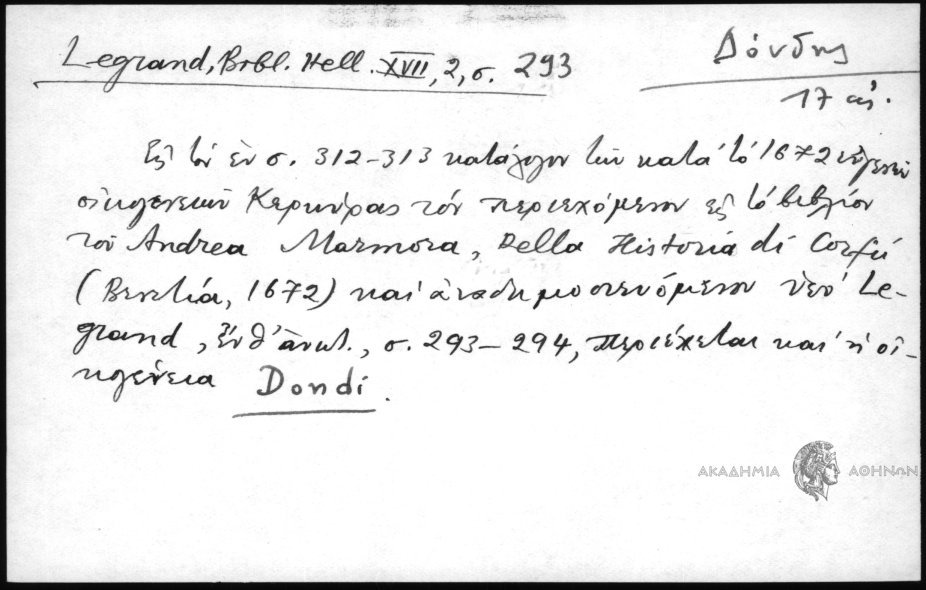 Legrand, Bibl. Hell. XVII, 2, σ. 293
Δόνδης
17 αἰ.
Εἰς τὸν ἐν σ. 312-313 κατάλογον τῶν κατὰ τὸ 1672 εὐγενῶν
οἰκογενειῶν Κερκύρας τὸν περιεχόμενον εἰς τὸ βιβλίον
τοῦ Andrea Marmora, Della Historia di Corfù
(Βενετία, 1672) καὶ ἀναδημοσιευόμενον ὑπὸ Le-
grand, ἔνθ' ἀνωτ., σ. 293-294, περιέχεται καὶ ἡ οἰ-
κογένεια Dondi.
ΑΚΑΔΗΜΙΑ ΑΘΗΝΩΝ